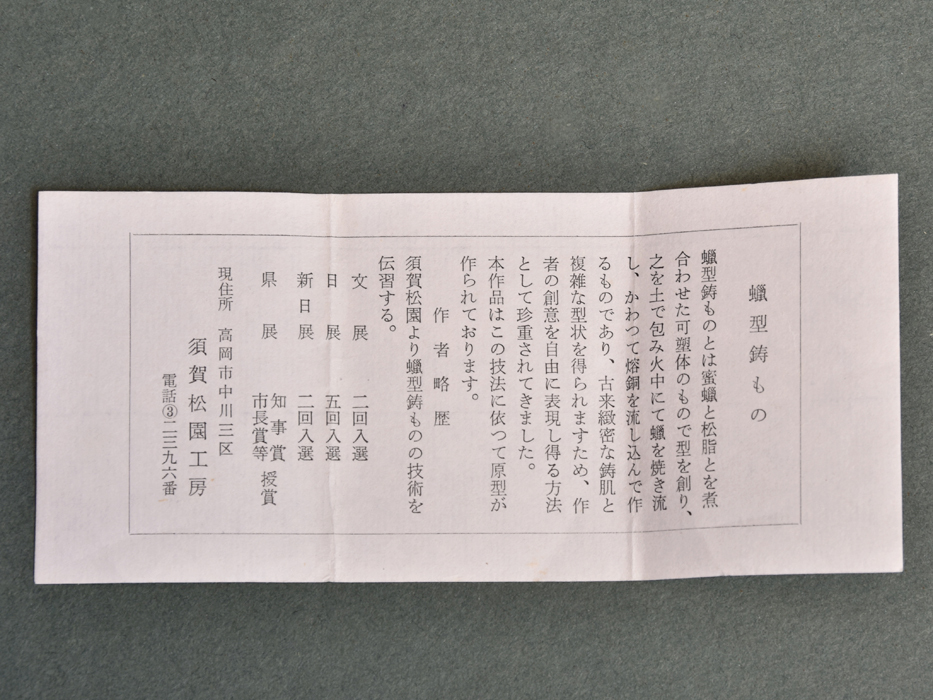 蠟型鋳もの
蠟型鋳ものとは蜜蠟と松脂とを煮
合わせた可塑体のもので型を創り、
之を土で包み火中にて蠟を焼き流
し、かわつて熔銅を流し込んで作
るものであり、古来緻密な鋳肌と
複雑な型状を得られますため、作
者の創意を自由に表現し得る方法
として珍重されてきました。
本作品はこの技法に依つて原型が
作られております。
作者略歴
須賀松園より蠟型鋳ものの技術を
伝習する。
文展 二回入選
日展 五回入選
新日展 二回入選
県展 知事賞 市長賞等 授賞
現住所 高岡市中川三区
須賀松園工房
電話③二三九六番